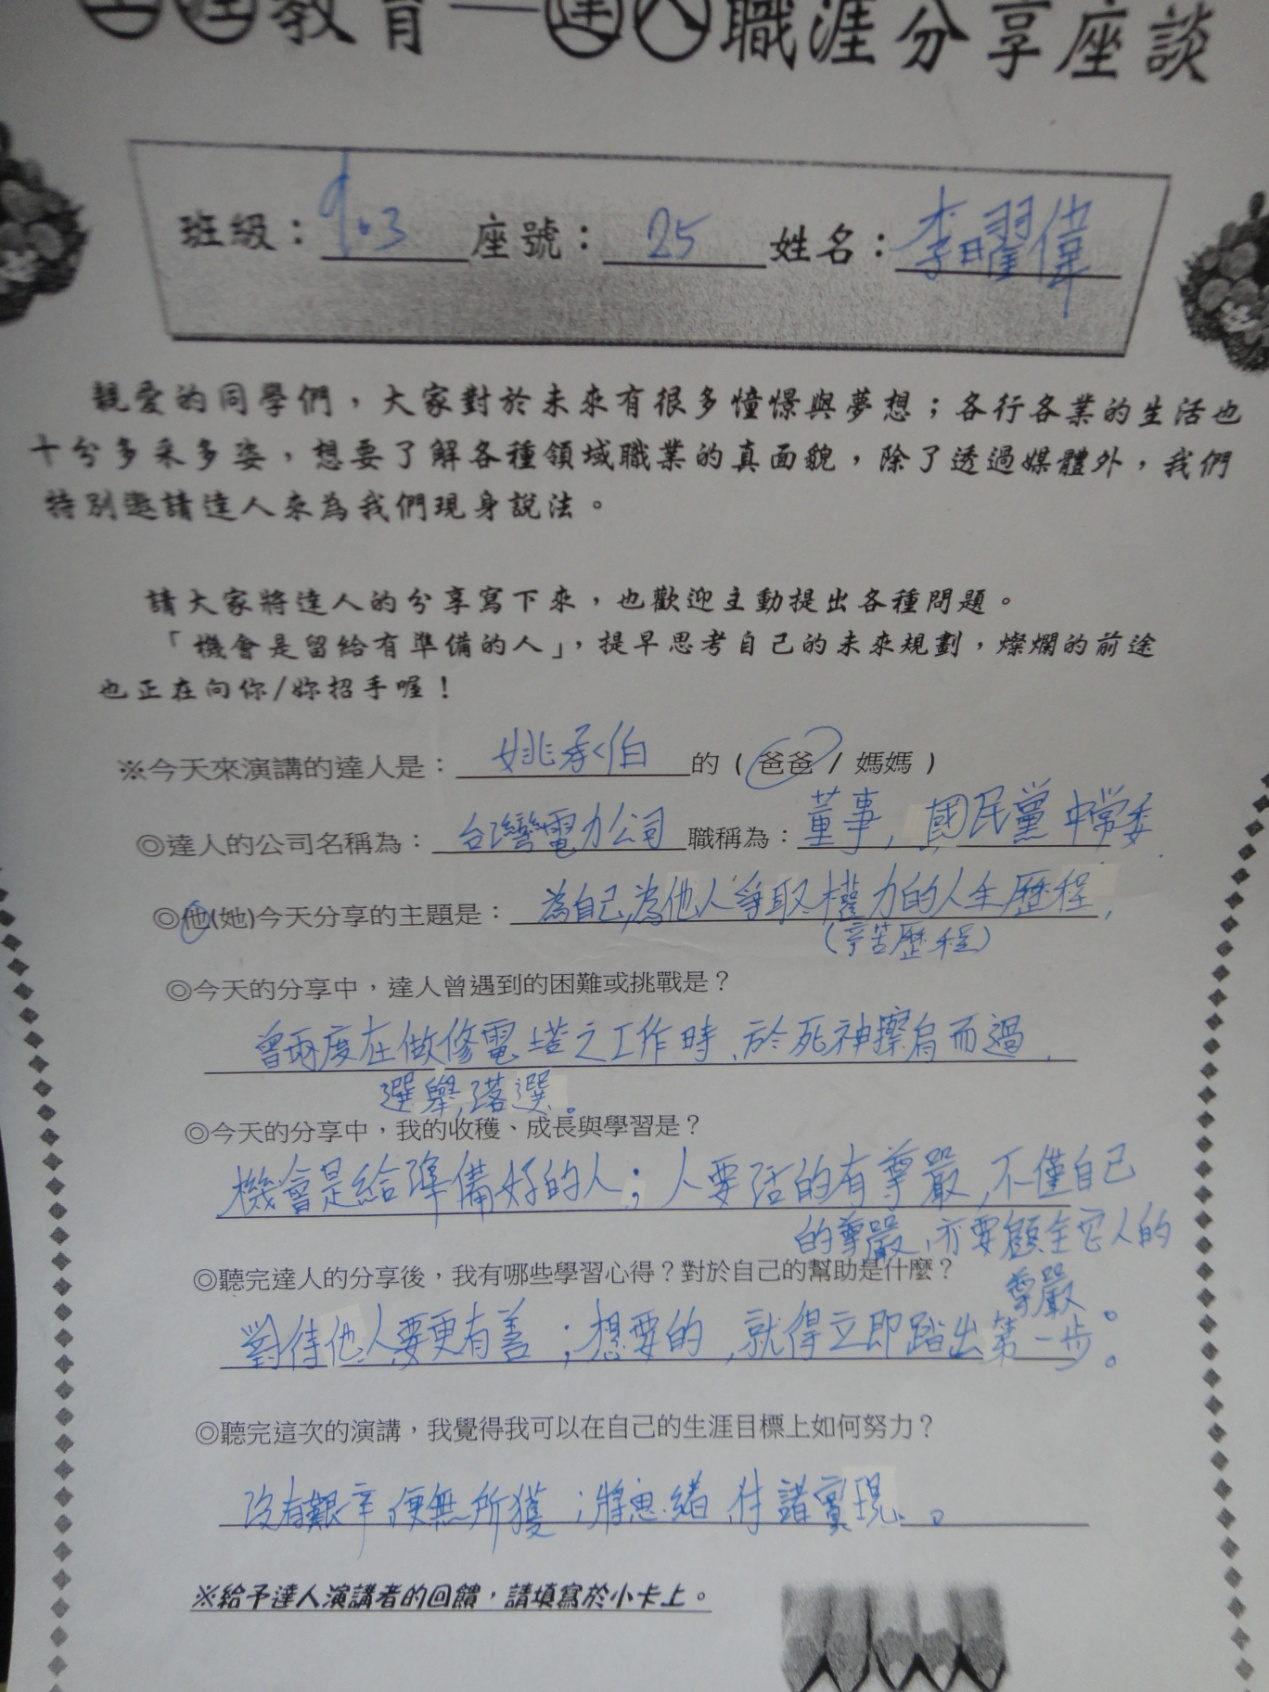 教育—達人職涯分享座談
班級：903 座號：25 姓名：李曜偉
親愛的同學們，大家對於未來有很多憧憬與夢想；各行各業的生活也
十分多采多姿，想要了解各種領域職業的真面貌，除了透過媒體外，我們
特別邀請達人來為我們現身說法。
請大家將達人的分享寫下來，也歡迎主動提出各種問題。
「機會是留給有準備的人」，提早思考自己的未來規劃，燦爛的前途
也正在向你/妳招手喔！
※今天來演講的達人是：姚承伯的（爸爸 / 媽媽）
◎達人的公司名稱為：台灣電力公司 職稱為：董事，國民黨中常委
◎他(她)今天分享的主題是：為自己，為他人爭取權力的人生歷程，
(辛苦歷程)
◎今天的分享中，達人曾遇到的困難或挑戰是？
曾兩度在做修電塔之工作時、於死神擦肩而過、
選舉落選。
◎今天的分享中，我的收穫、成長與學習是？
機會是給準備好的人；人要活的有尊嚴，不僅自己
的尊嚴，亦要顧全它人的
◎聽完達人的分享後，我有哪些學習心得？對於自己的幫助是什麼？
尊嚴。
對待他人要更有善；想要的，就得立即踏出第一步。
◎聽完這次的演講，我覺得我可以在自己的生涯目標上如何努力？
沒有艱辛，便無所獲；將思緒付諸實現。
※給予達人演講者的回饋，請填寫於小卡上。